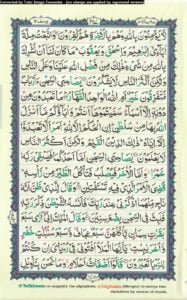 Converted by Tiff Combine - (no stamps are applied by registered version)
لَا يُؤْمِنُونَ بِاللّٰهِ وَهُمْ بِالْاٰخِرَةِ هُمْ كٰفِرُوْنَ وَاتَّبَعْتُ مِلَّةَ
اٰبَآءِيْٓ اِبْرٰهِيْمَ وَاِسْحٰقَ وَيَعْقُوْبَ مَا كَانَ لَنَآ اَنْ نُّشْرِكَ
بِاللّٰهِ مِنْ شَيْءٍ ذٰلِكَ مِنْ فَضْلِ اللّٰهِ عَلَيْنَا وَعَلَى النَّاسِ
وَلٰكِنَّ اَكْثَرَ النَّاسِ لَا يَشْكُرُوْنَ يٰصَاحِبَيِ السِّجْنِ ءَاَرْبَابٌ
مُّتَفَرِّقُوْنَ خَيْرٌ اَمِ اللّٰهُ الْوَاحِدُ الْقَهَّارُ مَا تَعْبُدُوْنَ مِنْ
دُوْنِهٖٓ اِلَّآ اَسْمَآءً سَمَّيْتُمُوْهَآ اَنْتُمْ وَاٰبَآؤُكُمْ مَّآ اَنْزَلَ
اللّٰهُ بِهَا مِنْ سُلْطٰنٍ اِنِ الْحُكْمُ اِلَّا لِلّٰهِ اَمَرَ اَلَّا تَعْبُدُوْٓا
اِلَّآ اِيَّاهُ ذٰلِكَ الدِّيْنُ الْقَيِّمُ وَلٰكِنَّ اَكْثَرَ النَّاسِ لَا
يَعْلَمُوْنَ يٰصَاحِبَيِ السِّجْنِ اَمَّآ اَحَدُكُمَا فَيَسْقِيْ رَبَّهٗ
خَمْرًا وَاَمَّا الْاٰخَرُ فَيُصْلَبُ فَتَاْكُلُ الطَّيْرُ مِنْ رَّاْسِهٖ
قُضِيَ الْاَمْرُ الَّذِيْ فِيْهِ تَسْتَفْتِيٰنِ وَقَالَ لِلَّذِيْ ظَنَّ
اَنَّهٗ نَاجٍ مِّنْهُمَا اذْكُرْنِيْ عِنْدَ رَبِّكَ فَاَنْسٰهُ الشَّيْطٰنُ ذِكْرَ
رَبِّهٖ فَلَبِثَ فِي السِّجْنِ بِضْعَ سِنِيْنَ وَقَالَ الْمَلِكُ اِنِّيْٓ اَرٰى سَبْعَ
بَقَرٰتٍ سِمَانٍ يَّاْكُلُهُنَّ سَبْعٌ عِجَافٌ وَّسَبْعَ سُنْۢبُلٰتٍ خُضْرٍ
وَّاُخَرَ يٰبِسٰتٍ يٰٓاَيُّهَا الْمَلَاُ اَفْتُوْنِيْ فِيْ رُءْيَايَ اِنْ كُنْتُمْ
لِلرُّءْيَا تَعْبُرُوْنَ قَالُوْٓا اَضْغَاثُ اَحْلَامٍ وَمَا نَحْنُ